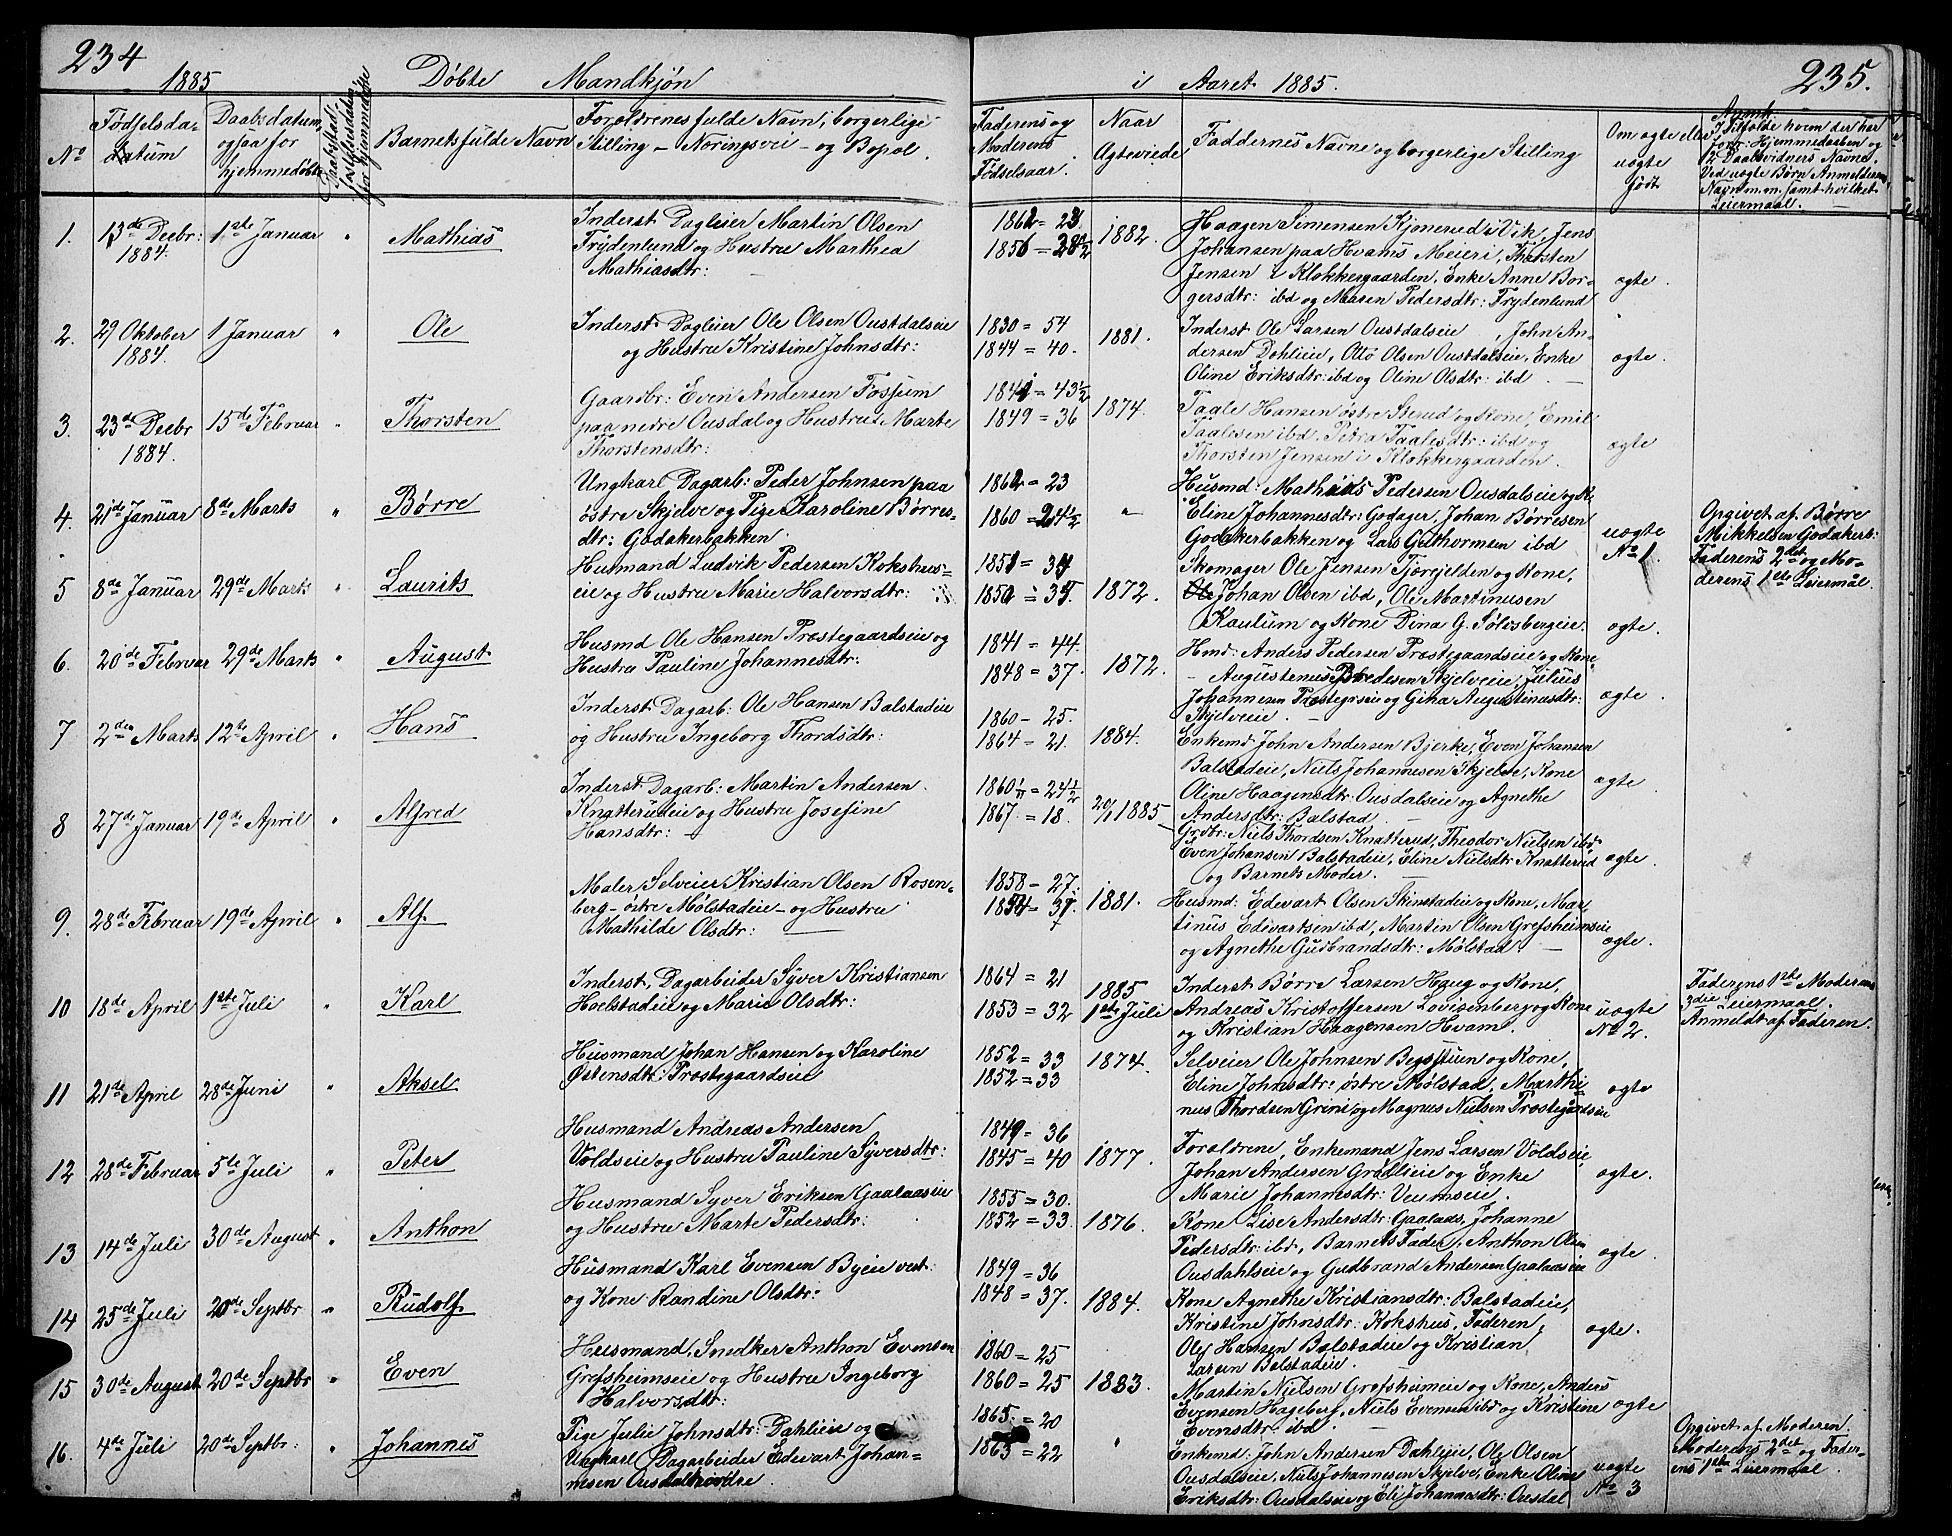 234
1885
Døbte Mandkjøn
i Aaret 1885.
235.
No
Fødselsda-
Datum
Daabsdatum,
ogsaa for
hjemmedøbte
Barnets fulde Navn
Forældrenes fulde Navn, borgerlige
Stilling - Næringsvei - og Bopæl.
Faderens og
Moderens
Fødselsaar.
Naar
Ægteviede
Faddernes Navne og borgerlige Stilling
Om ægte eller
uægte
født
Anmk.
I Tilfælde hvem der har
forr: Hjemmedaaben og
2 Daabsvidners Navne.
Ved uægte Børn Anmelderens
Navn m.m. samt hvilket
Leiermaal. -
1. 13de Decbr: 1ste Januar " Mathias
1884.
Inderst Dagleier Martin Olsen
Frydenlund og Hustru Marthea
Mathiasdtr:
1862 = 23.
1856 = 28½
1882.
Haagen Simensen Kjønerud i Vik, Jens
Johansen paa Hvams Meieri, Thorsten
Jensen i Klokkergaarden, Enke Anne Bor-
gersdtr: ibd og Maren Pedersdtr: Frydenlund
ægte.
2. 29 Oktober 1 Januar " Ole
1884.
Inderst Dagleier Ole Olsen Oustdalseie
og Hustru Kristine Johnsdtr:
1830 = 54
1844 = 40.
1881.
Inderst Ole Larsen Oustdalseie, John An-
dersen Dahlieie, Otto Olsen Oustdalseie, Enke
Oline Eriksdtr: ibd og Oline Olsdtr: ibd. -
ægte.
3. 23de Decbr 15de Februar " Thorsten
1884.
Gaardbr: Even Andersen Fossum
paa nedre Ousdal og Hustru Marte
Thorstensdtr:
1841 = 43½
1849 = 36
1874.
Taale Hansen østre Sterud og Kone, Emil
Taalesen ibd, Petra Taalesdtr: ibd og
Thorsten Jensen i Klokkergaarden.
ægte
4. 21de Januar 8de Marts " Børre
Ungkarl Dagarb: Peder Johnsen paa
østre Skjelve og Pige Karoline Børres-
dtr: Godakerbakken.
1862 = 23
1860 = 24½
"
Husmd: Mathias Pedersen Ousdalseie og K.
Eline Johannesdtr: Godager, Johan Børresen
Godakerbakken og Lars Guthormsen ibd
uægte
No 1.
Opgivet af Børre
Mikkelsen Godakerb:
Faderens 2det og Mo-
derens 1ste Leiermaal.
5 8de Januar 29de Marts " Laurits
Husmand Ludvik Pedersen Kokshus-
eie og Hustru Marie Halvorsdtr:
1851 = 34
1850 = 35
1872.
Skomager Ole Jensen Tjærejelden og Kone,
Johan Olsen ibd, Ole Martinusen
Kaulum og Kone Dina G. Sølvsbergeie.
ægte.
6. 20de Februar 29de Marts " August
Husmd Ole Hansen Præstegaardseie og
Hustru Pauline Johannesdtr:
1841 = 44.
1848 = 37.
1872.
Hmd: Anders Pedersen Præstegaardseie og Kone,
- Augustenus Skjelveie, Julius
Johannesen Præstegrseie og Gina Augustinusdtr:
Skjelveie. -
ægte.
7 2den Marts 12te April " Hans
Inderst Dagarb: Ole Hansen Balstadeie
og Hustru Ingeborg Thordsdtr:
1860 - 25.
1864 = 21.
1884.
Enkemd John Andersen Bjerke, Even Johansen
Balstadeie, Niels Johannesen Skjelve, Kone
Oline Haagensdtr: Ousdalseie og Agnethe
Andersdtr: Balstad. -
ægte
8 27de Januar 19de April " Alfred
Inderst Dagarb: Martin Andersen
Knatterudeie og Hustru Josefine
Hansdtr: -
1860 = 24½
1867. = 18.
20/1 1885
Grdbr: Niels Thordsen Knatterud, Theodor Nielsen ibd
Even Johansen Balstadeie, Eline Nielsdtr Knatterud
og Barnets Moder. -
ægte.
9. 28de Februar 19de April " Alf.
Maler Selveier Kristian Olsen Rosen-
berg - østre Mølstadeie - og Hustru
Mathilde Olsdtr:
1858 - 27.
1854 = 31.
1881.
Husmd: Edevart Olsen Skinstadeie og Kone, Mar-
tinus Edevartsen ibd, Martin Olsen Grefsheimseie
og Agnethe Gudbrandsdtr: Mølstad. -
ægte.
10 18de April 1ste Juli " Karl
Inderst, Dagarbeider Syver Kristiansen
Hoelstadeie og Marie Olsdtr:
1864 = 21
1853 = 32
1885
1ste Juli
Inderst Børre Larsen Haug og Kone,
Andreas Kristoffersen Lovisenberg og Kone
og Kristian Haagensen Hvam.
uægte
No 2.
Faderens 1ste Moderens
3die Leiermaal.
Anmeldt af Faderen.
11 21de April 28de Juni " Aksel
Husmand Johan Hansen og Karoline
Østensdtr: Præstegaardseie
1852 = 33
1852 = 33
1874.
Selveier Ole Johnsen Begstuen og Kone,
Eline Johnsdtr: østre Mølstad, Marthi-
nus Thordsen Grini og Magnus Nielsen Præstegardseie
ægte
12 28de Februar 5te Juli " Peter
Husmand Andreas Andersen
Voldseie og Hustru Pauline Syversdtr:
1849 - 36
1845 = 40
1877.
Forældrene, Enkemand Jens Larsen Voldseie,
Johan Andersen Grødlieie og Enke
Marie Johannesdtr: Veumseie.
ægte.
13 14de Juli 30de August " Anthon
Husmand Syver Eriksen Gaalaaseie
og Hustru Marte Pedersdtr:
1855 = 30.
1852 = 33.
1876.
Kone Lise Andersdtr: Gaalaas, Johanne
Pedersdtr: ibd, Barnets Fader, Anthon Olsen
Ousdahlseie og Gudbrand Andersen Gaalaaseie
ægte.
14 25de Juli 20de Septbr " Rudolf.
Husmand Karl Evensen Byeie vest:
og Kone Randine Olsdtr:
1849 = 36
1848 = 37.
1884.
Kone Agnethe Kristiansdtr: Balstadeie,
Kristine Johnsdtr: Kokshus, Faderen,
Ole Hansen Balstadeie og Kristian
Larsen Balstadeie.
ægte.
15 30de August 20de Septbr " Even
Husmand, Snedker Anthon Evensen
Grefsheimseie og Hustru Ingeborg
Halvorsdtr:
1860 = 25
1860 = 25
1883.
Martin Nielsen Grefsheimeie og Kone, Anders
Evensen Hageberg, Niels Evensen ibd og Kristine
Evensdtr: ibd. -
ægte
16. 4de Juli 20de Septbr: " Johannes
Pige Julie Johnsdtr: Dahlieie og
Ungkarl Dagarbeider Edevart Johan-
nesen Ousdal
1865. = 20
1863 = 22
"
Enkemd: John Andersen Dahlieie, Ole Olsen
Ousdalseie, Niels Johannesen Skjelve, Enke Oline
Eriksdtr: Ousdalseie og Eli Johannesdtr: Ousdal
uægte
No 3
Opgivet af Moderen.
Moderens 2det og Fader-
ens 1ste Leiermaal.